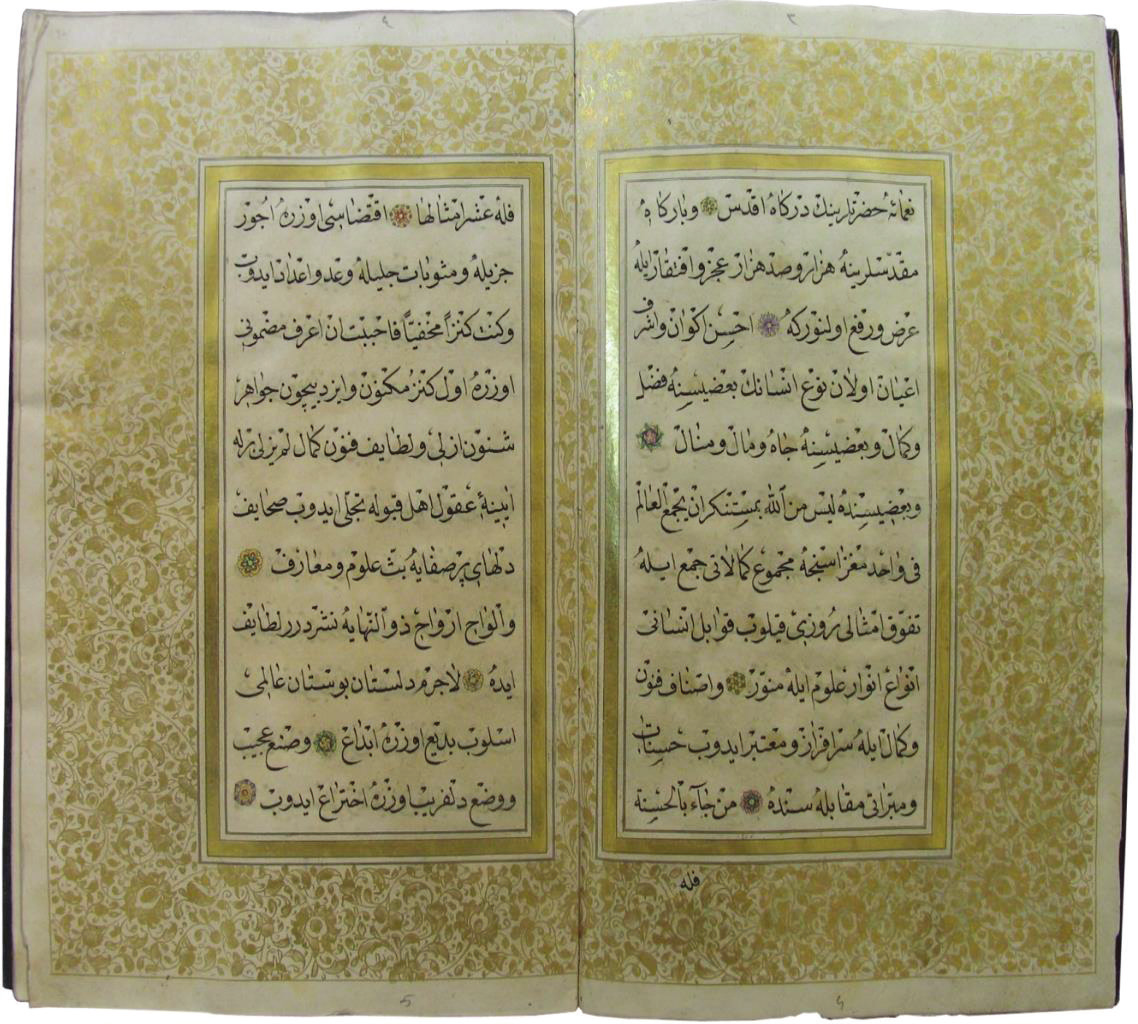 ٣
نعمائه حضرتلرينك دركاه اقدس و باركاه
مقدسلرينه هزار و صد هزار عجز و افتقار ايله
عرض و رفع اولنور كه احسن اكوان و اشرف
اعيان اولان نوع انسانك بعضيسينه فضل
و كمال و بعضيسينه جاه و مال و منال
و بعضيسنده ليس من الله بمستنكر ان يجمع العالم
فى واحد مغزاسنجه مجموع كمالاتى جمع ايله
تفوق امثالى روزى قيلوب قوابل انسانى
انواع انوار علوم ايله منور و اصناف فنون
و كمال ايله سرافراز و معتبر ايدوب حسنات
و مبراتى مقابله سنده من جاء بالحسنة
فله
٤
فله عشر امثالها اقتضاسى اوزره اجور
جزيله و مثوبات جليله وعد و اعداد ايدوب
وكنت كنزاً مخفيتاً فاحببت ان اعرف مضمونى
اوزره اول كنز مكنون و ايزد بيچون جواهر
شئون ازلى و لطايف فنون كمال لم يزلى برله
ايينه عقول اهل قبوله تجلى ايدوب صحايف
دلهاى پر صفايه بث علوم و معارف
و الواح ارواح ذو النهايه نشر درر لطايف
ايده لاجرم دلستان بوستان عالمى
اسلوب بديع اوزره ابداع و صنع عجيب
و وضع دلفريب اوزره اختراع ايدوب